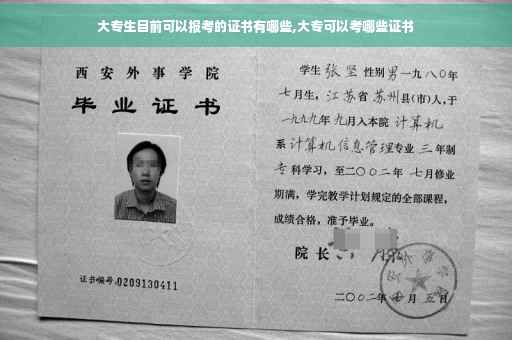 大专生目前可以报考的证书有哪些,大专可以考哪些证书
西安外事学院
毕业证书
证书编号:0209130411
学生 张坚 性别男一九八〇年
七月生，江苏省苏州县(市)人,于
一九九九年九月入本院计算机
系计算机信息管理专业三年制
专科学习，至二〇〇二年七月修业
期满，学完教学计划规定的全部课程，
成绩合格，准予毕业。
院长
二〇〇二年 月五日